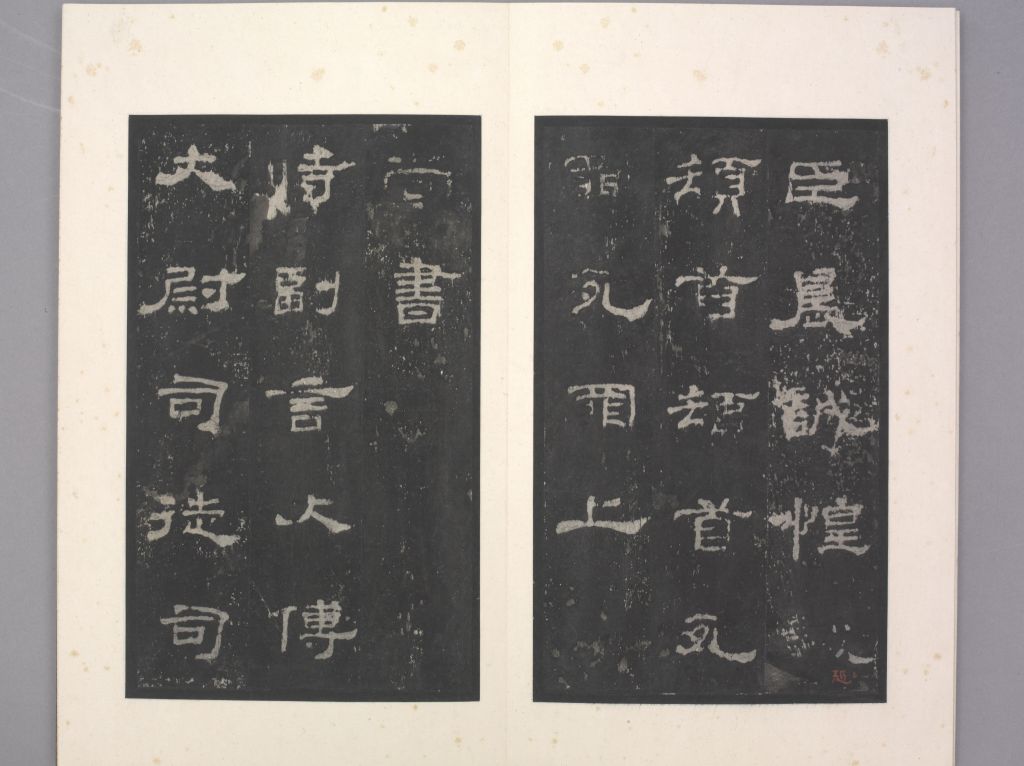 臣晨誠惶
頓首頓首死
罪死罪上
尚書
時副言大傅
大尉司徒司